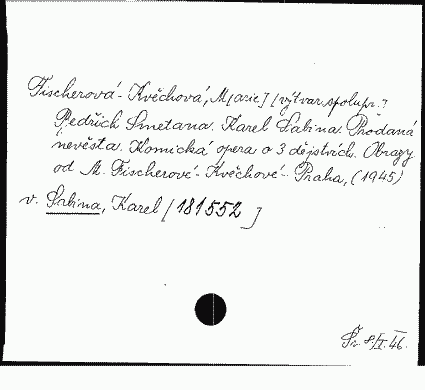 Fischerová-Kvěchová, M[arie] [výtvar. spolupr.]
Bedřich Smetana. Karel Sabina. Prodaná
nevěsta. Komická opera o 3 dějstvích. Obrazy
od M. Fischerové-Kvěchové - Praha, (1945)
v. Sabina, Karel [181552]
8/II.46.